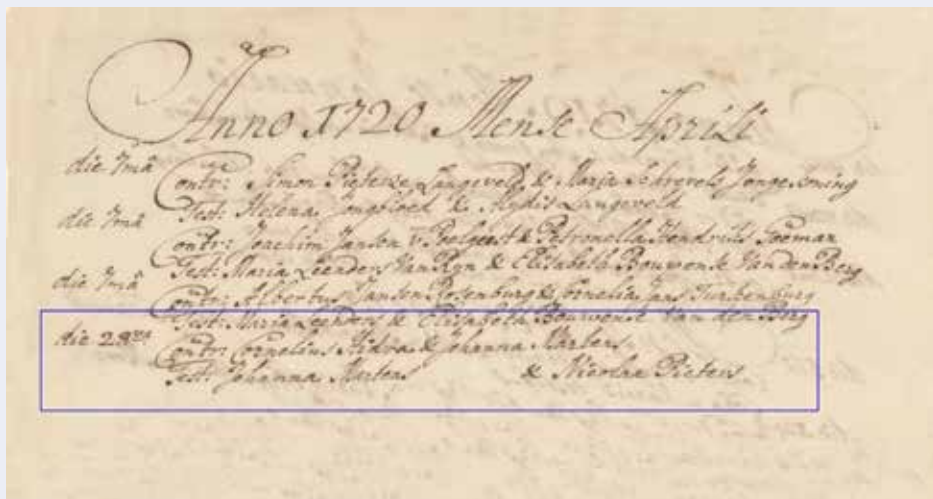 Anno 1720 Mense Aprili
die 7mâ Contr: Simon Pieterse Langeveld & Maria Schrevels Jongeconing
Test: Helena Jongbloed & Alydis Langeveld
die 7mâ Contr: Joachim Jansen v Poelgeest & Petronella Hendriks Gooman
Test: Maria Leenders Van Ryn & Elisabeth Bouwense Van den Berg
die 7mâ Contr: Albertus Jansen Rosenburg & Cornelia Jans Turkenburg
Test: Maria Leenders & Elisabeth Bouwense Van den Berg
die 28va Contr: Cornelius & Johanna Martens
Test: Johanna Martens & Nicolae Pieters